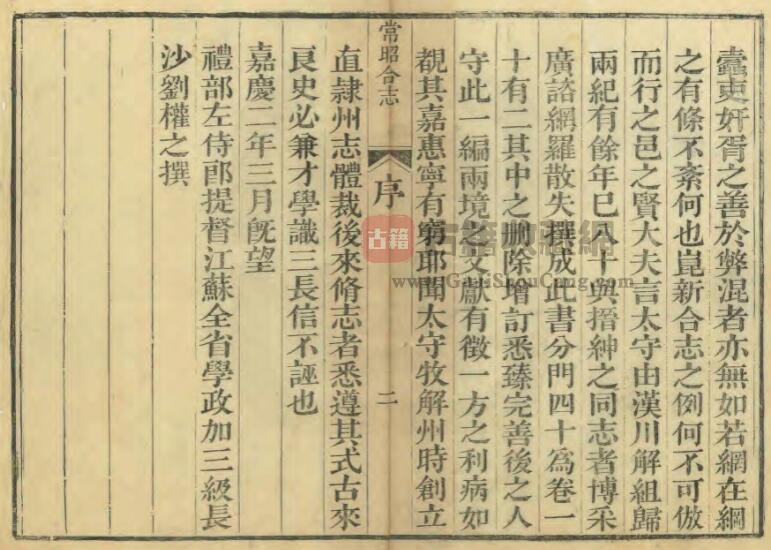 蠧吏奸胥之善於弊混者亦無如若網在綱
之有條不紊何也崑新合志之例何不可倣
而行之邑之賢大夫言太守由漢川解組歸
兩紀有餘年巳八十與搢紳之同志者博采
廣諮網羅散失撰成此書分門四十爲卷一
十有二其中之删除增訂悉臻完善後之人
守此一編兩境之文獻有徵一方之利病如
覩其嘉惠寧有窮耶聞太守牧解州時創立
常昭合志
序
二
直隷州志體裁後來脩志者悉遵其式古來
良史必兼才學識三長信不誣也
嘉慶二年三月旣望
禮部左侍郎提督江蘇全省學政加三級長
沙劉權之撰
古籍
古籍收藏網
www.GuJiShouCang.com